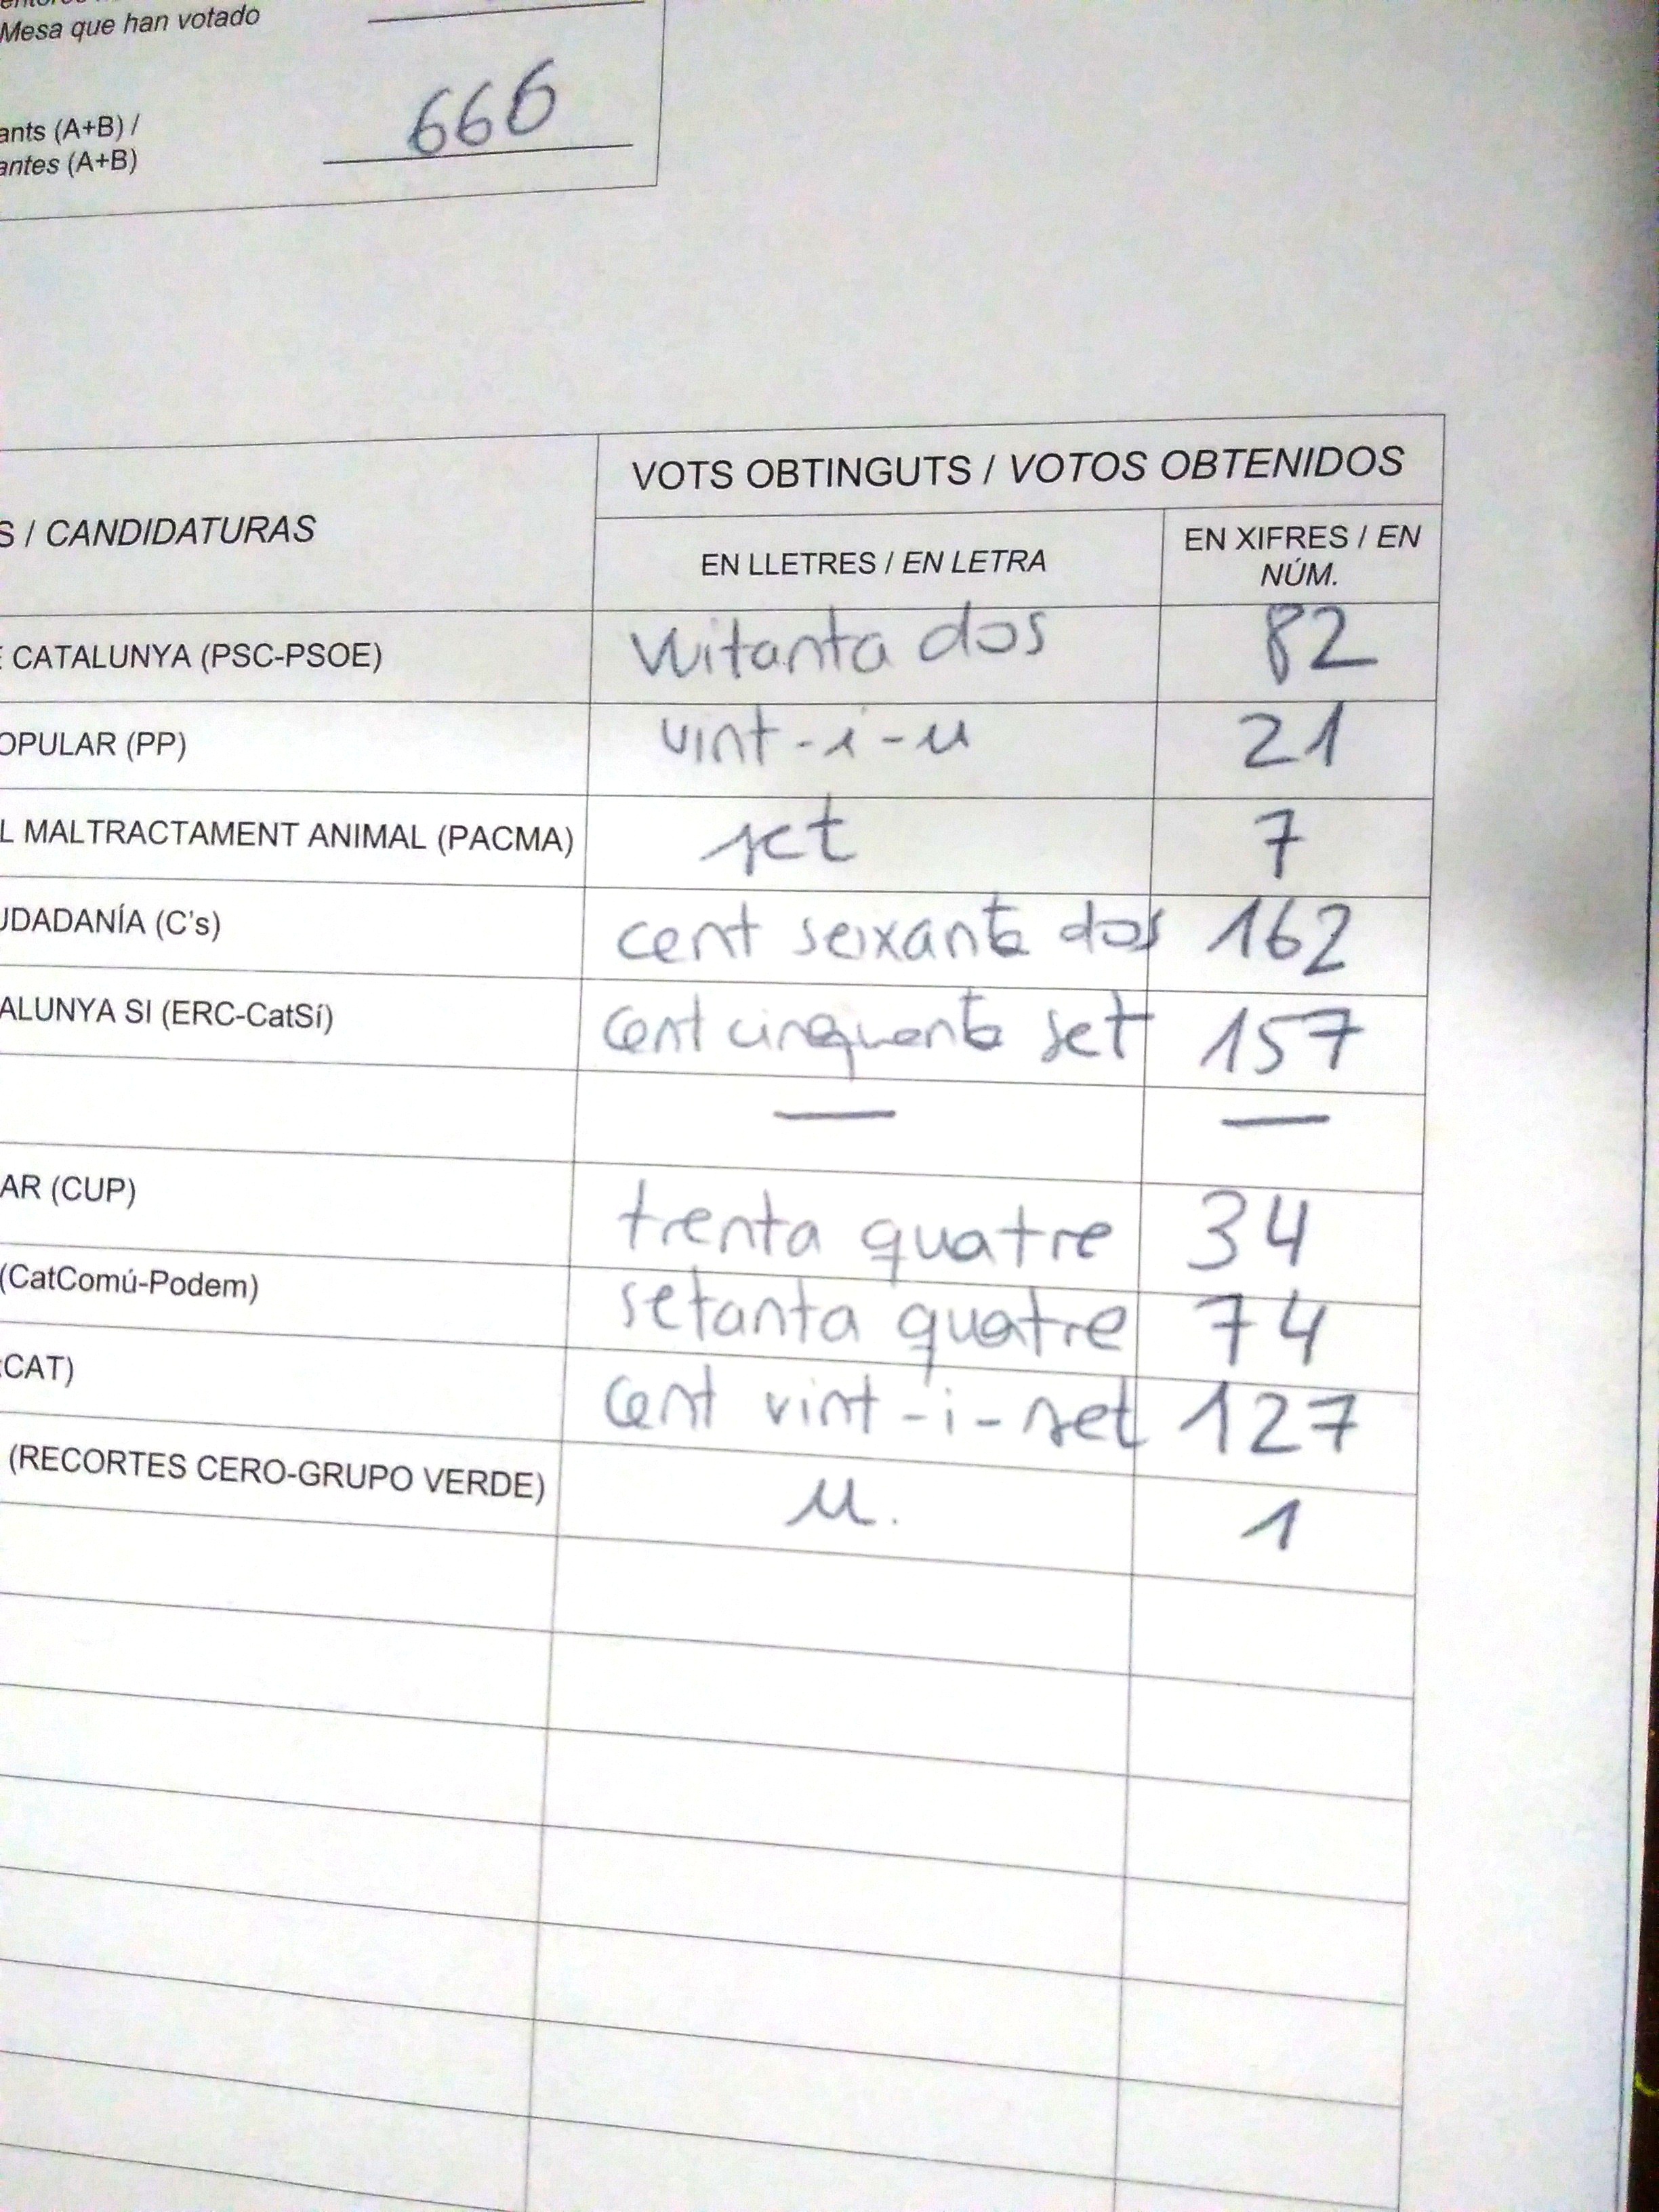 Mesa que han votado
ants (A+B) /
antes (A+B)
666
VOTS OBTINGUTS / VOTOS OBTENIDOS
S / CANDIDATURAS
EN LLETRES / EN LETRA
EN XIFRES / EN NÚM.
E CATALUNYA (PSC-PSOE) vuitanta dos 82
OPULAR (PP) vint-i-u 21
L MALTRACTAMENT ANIMAL (PACMA) set 7
UDADANÍA (C's) cent seixanta dos 162
ALUNYA SI (ERC-CatSí) cent cinquanta set 157
— —
AR (CUP) trenta quatre 34
(CatComú-Podem) setanta quatre 74
CAT) cent vint-i-set 127
(RECORTES CERO-GRUPO VERDE) u. 1